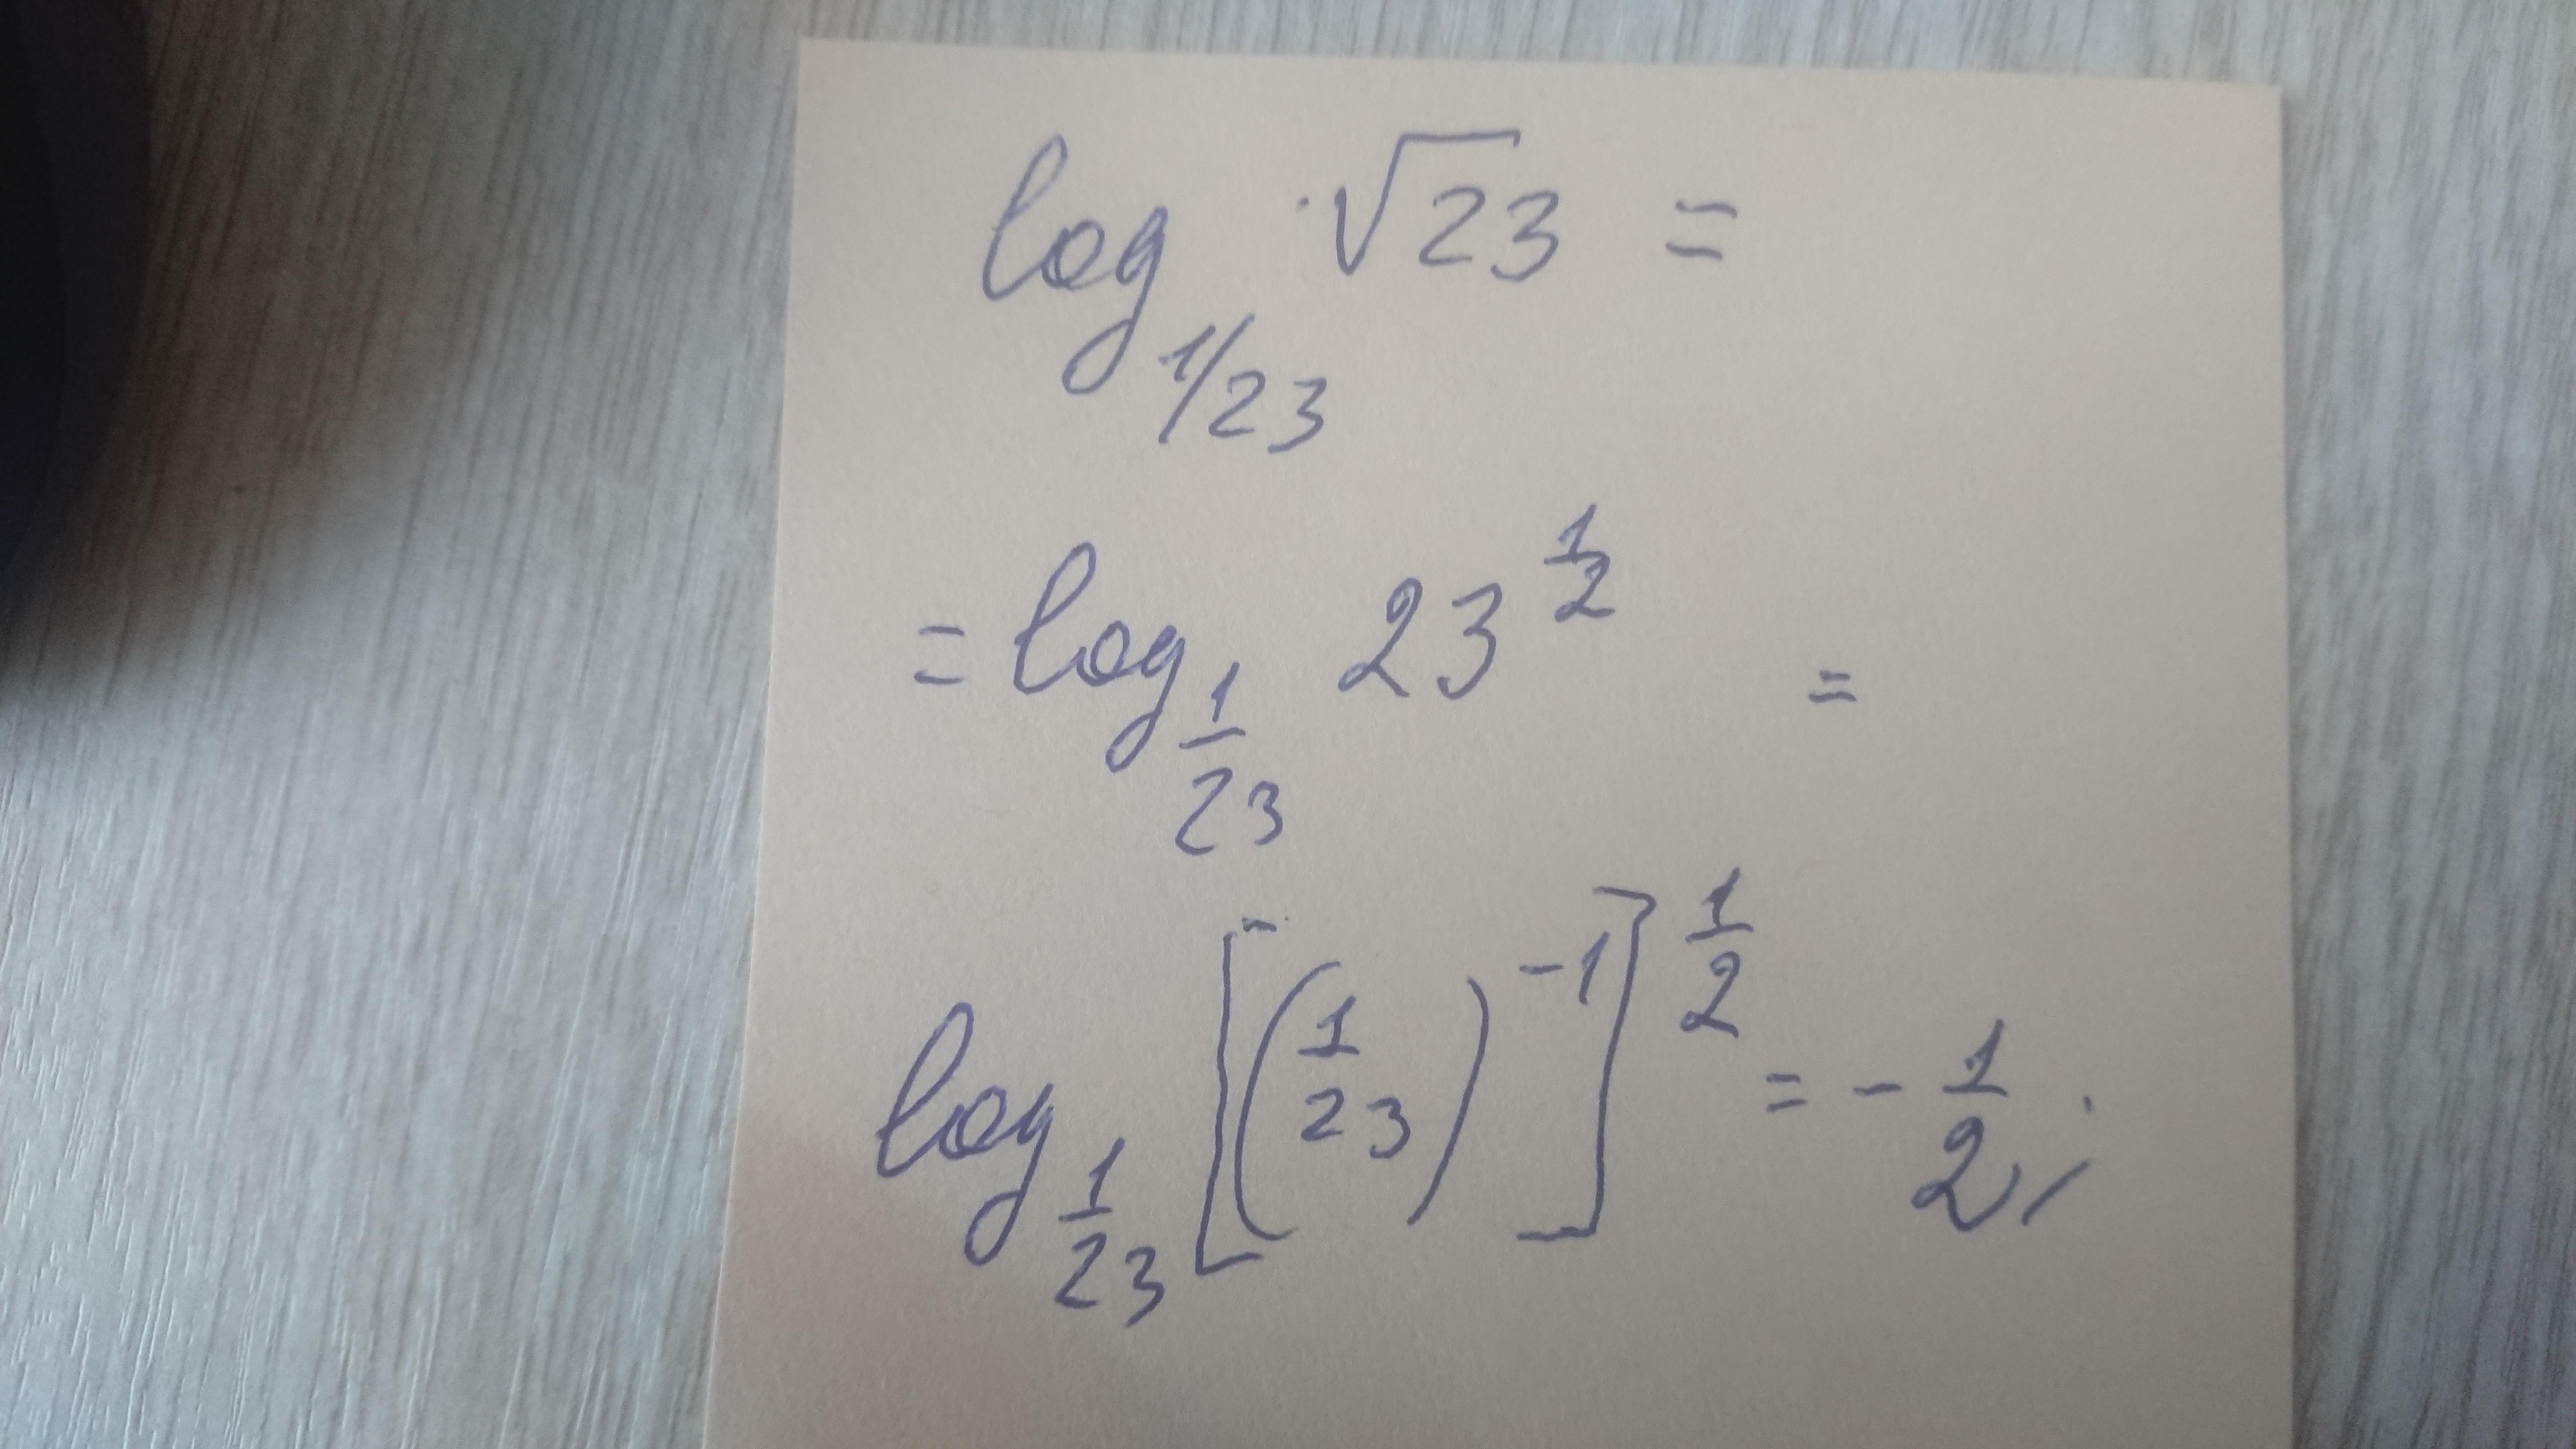 log_{1/23} √23 =
= log_{1/23} 23^{1/2} =
log_{1/23} [(1/23)^{-1}]^{1/2} = -1/2;